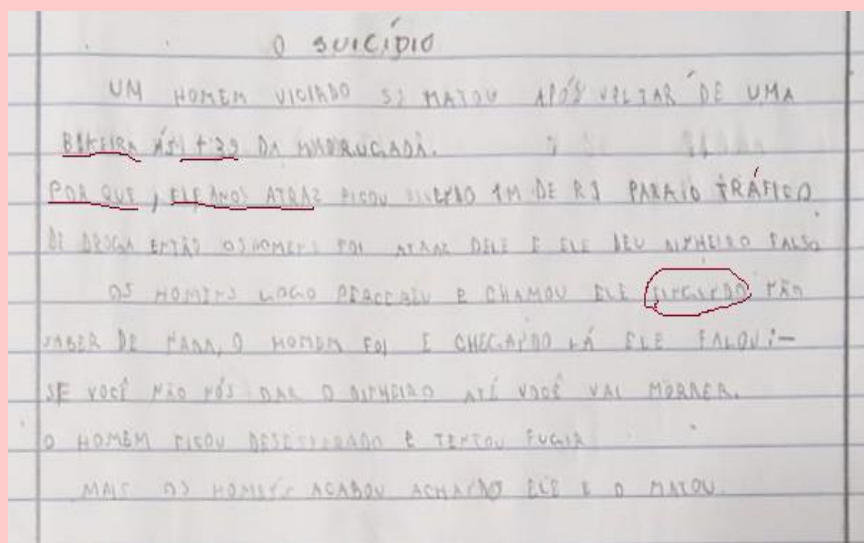 O SUICÍDIO
UM HOMEM VICIADO SI MATOU APÓS VOLTAR DE UMA
DA MADRUGADA.
POR QUE, ELE ANOS ATRAZ FICOU DEVENDO 1M DE R$ PARA O TRÁFICO
DE DROGA ENTÃO OS HOMENS FOI ATRAZ DELE E ELE DEU DINHEIRO FALSO
OS HOMENS LOGO PERCEBEU E CHAMOU ELE FINGINDO NÃO
SABER DE NADA, O HOMEM FOI E CHEGANDO LÁ ELE FALOU:-
SE VOCÊ NÃO NÓS DAR O DINHEIRO ATÉ VOCÊ VAI MORRER.
O HOMEM FICOU DESESPERADO E TENTOU FUGIR
MAIS OS HOMENS ACABOU ACHANDO ELE E O MATOU.